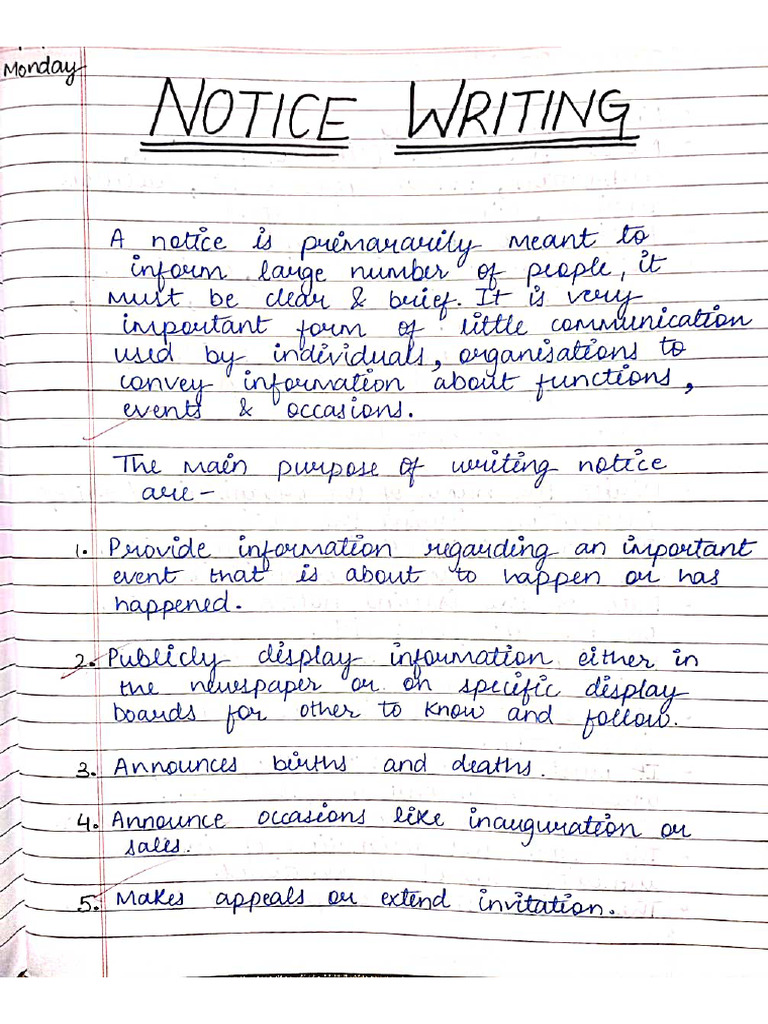 Monday
NOTICE WRITING
A notice is primararily meant to
inform large number of people, it
must be clear & brief. It is very
important form of little communication
used by individuals, organisations to
convey information about functions,
events & occasions.
The main purpose of writing notice
are -
1. Provide information regarding an important
event that is about to happen or has
happened.
2. Publicly display information either in
the newspaper or on specific display
boards for other to know and follow.
3. Announces births and deaths.
4. Announce occasions like inauguration or
sales.
5. Makes appeals or extend invitation.